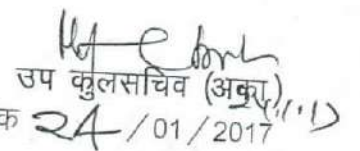 उप कुलसचिव (अका.)
क 24/01/2017